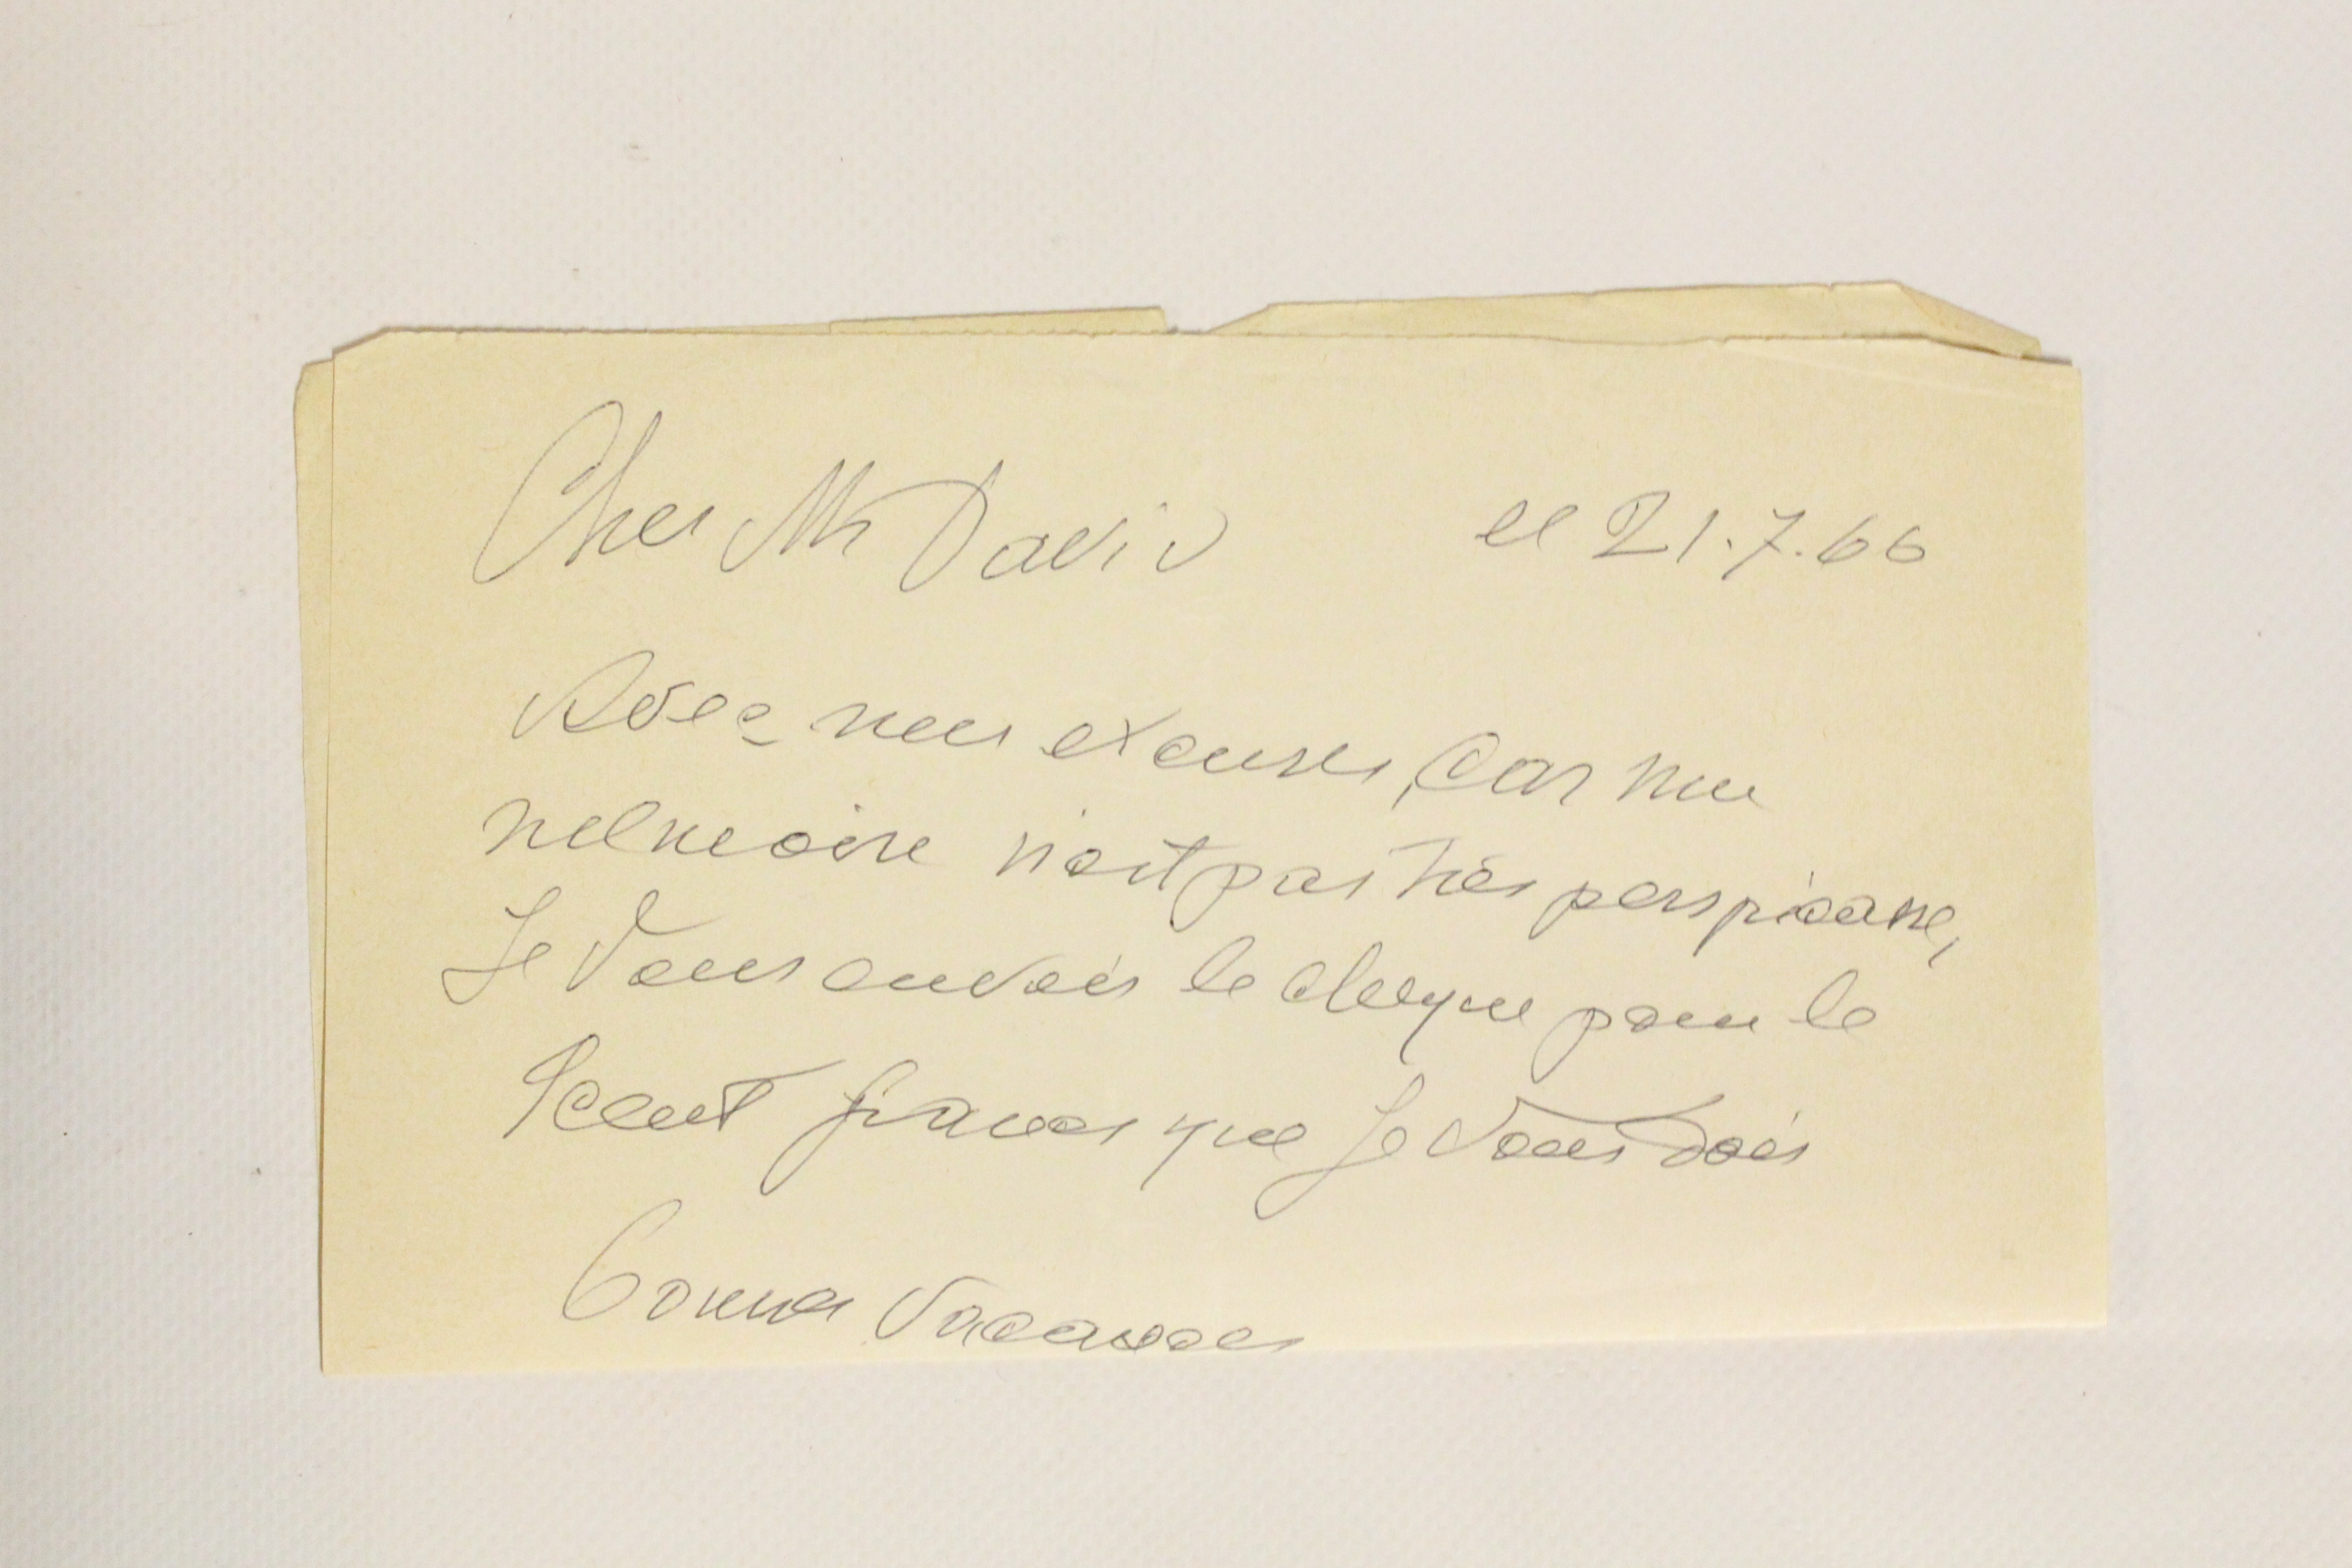 Cher Mr David le 21.7.66
mes excuses, car ma
mémoire n'est pas très perspicase,
Je vous envois le cheque pour le
cent francs que Je vous dois
Bonnes Vacances